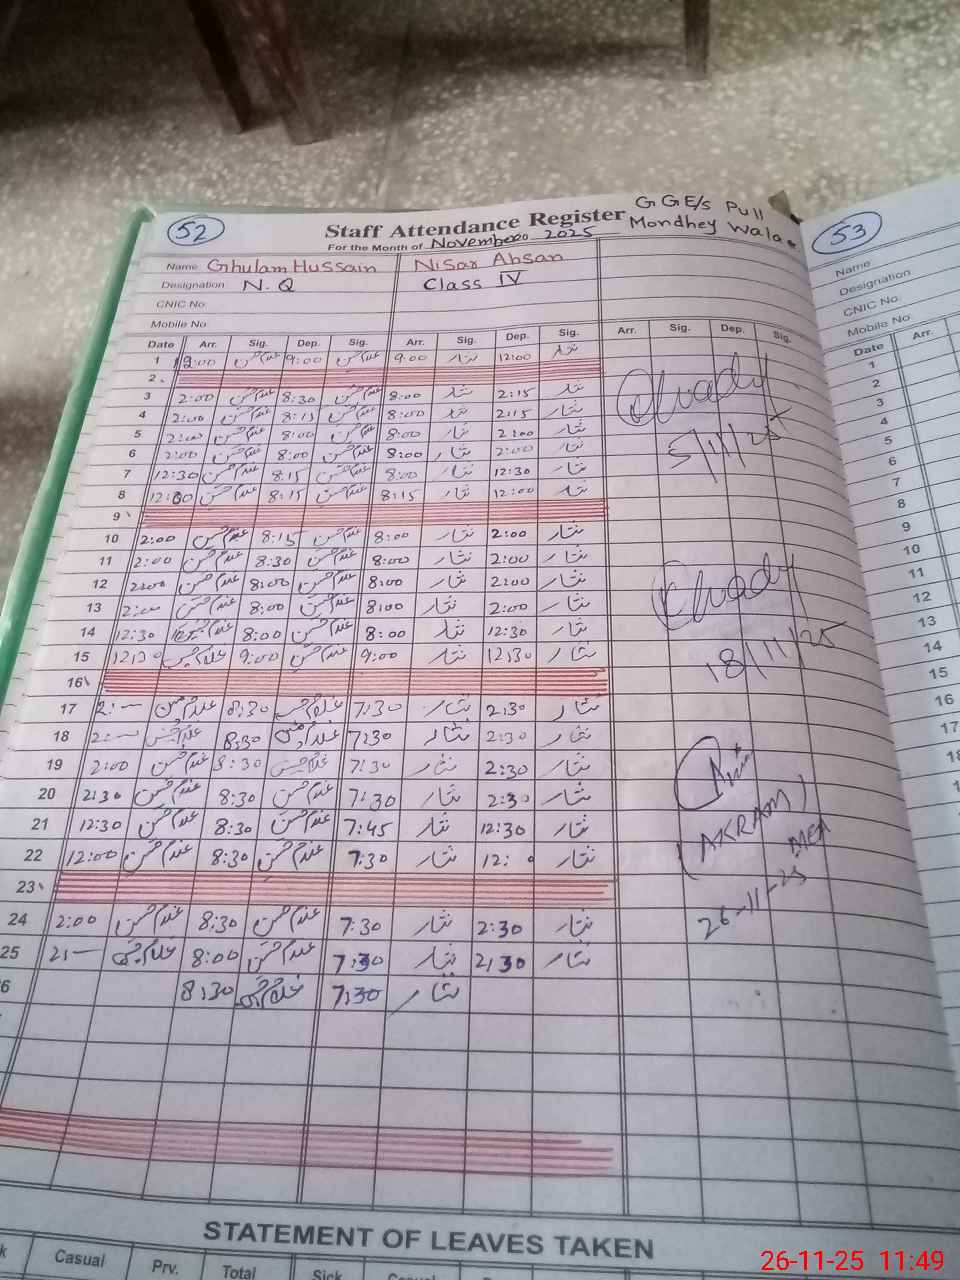 52
Staff Attendance Register
GGE/s Pull
Mondhey Wala
53
For the Month of November 2025
Name Ghulam Hussain Nisar Ahsan
Designation N.Q Class IV
CNIC No
Mobile No
Name
Designation
CNIC No
Mobile No
Date Arr. Sig. Dep. Sig. Arr. Sig. Dep. Sig. Arr. Sig. Dep. Sig.
Date Arr.
1 2:00 غلام حسین 9:00 غلام حسین 9:00 نثار 12:00 نثار
2
3 2:00 غلام حسین 8:30 غلام حسین 8:00 نثار 2:15 نثار
4 2:00 غلام حسین 8:15 غلام حسین 8:00 نثار 2:15 نثار
5 2:00 غلام حسین 8:00 غلام حسین 8:00 نثار 2:00 نثار
5/11/25
6 2:00 غلام حسین 8:00 غلام حسین 8:00 نثار 2:00 نثار
7 12:30 غلام حسین 8:15 غلام حسین 8:00 نثار 12:30 نثار
8 12:00 غلام حسین 8:15 غلام حسین 8:15 نثار 12:00 نثار
9
10 2:00 غلام حسین 8:15 غلام حسین 8:00 نثار 2:00 نثار
11 2:00 غلام حسین 8:30 غلام حسین 8:00 نثار 2:00 نثار
12 2:00 غلام حسین 8:00 غلام حسین 8:00 نثار 2:00 نثار
13 2:00 غلام حسین 8:00 غلام حسین 8:00 نثار 2:00 نثار
14 12:30 غلام حسین 8:00 غلام حسین 8:00 نثار 12:30 نثار
15 12:30 غلام حسین 9:00 غلام حسین 9:00 نثار 12:30 نثار
18/11/25
16
17 2:— غلام حسین 8:30 غلام حسین 7:30 نثار 2:30 نثار
18 2:— غلام حسین 8:30 غلام حسین 7:30 نثار 2:30 نثار
19 2:00 غلام حسین 8:30 غلام حسین 7:30 نثار 2:30 نثار
20 2:30 غلام حسین 8:30 غلام حسین 7:30 نثار 2:30 نثار
21 12:30 غلام حسین 8:30 غلام حسین 7:45 نثار 12:30 نثار
(AKRAM)
MEA
22 12:00 غلام حسین 8:30 غلام حسین 7:30 نثار 12: 0 نثار
23
26-11-25
24 2:00 غلام حسین 8:30 غلام حسین 7:30 نثار 2:30 نثار
25 2:— غلام حسین 8:00 غلام حسین 7:30 نثار 2:30 نثار
6 8:30 غلام حسین 7:30 نثار
1
2
3
4
5
6
7
8
9
10
11
12
13
14
15
16
17
18
STATEMENT OF LEAVES TAKEN
k Casual Prv. Total Sick Casual
26-11-25 11:49